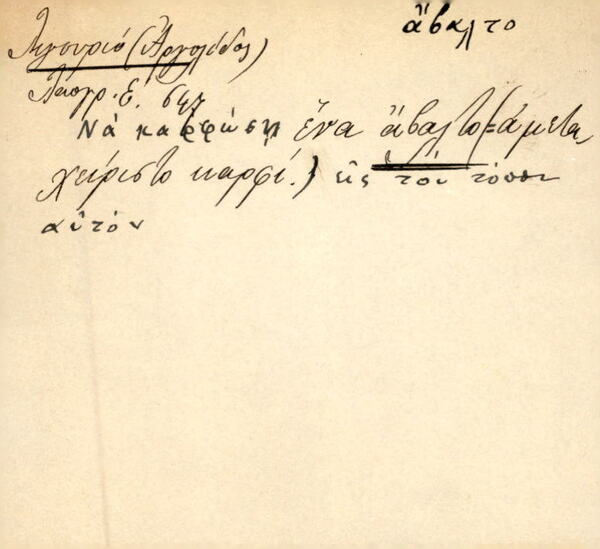 ἄβαλτο
Λυγουριό (Ἀργολίδος)
Λαογρ. Ε. 647
Νά καρφώσῃ ἕνα ἄβαλτο (= ἀμετα
χείριστο καρφί.) εἰς τόν τόπον
αὐτόν